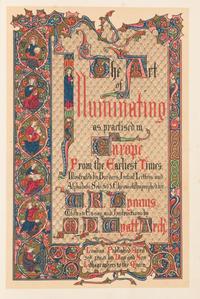 The Art
of
Illuminating
as practised in
Europe
From the Earliest Times
Illustrated by Borders, Initial Letters and
Alphabets, Selected & Chromolithographed by
W. R. Tymms
With an Essay and Instructions by
M. D. Wyatt Arch.
London Published
by Day and Son
Lithographers to the Queen